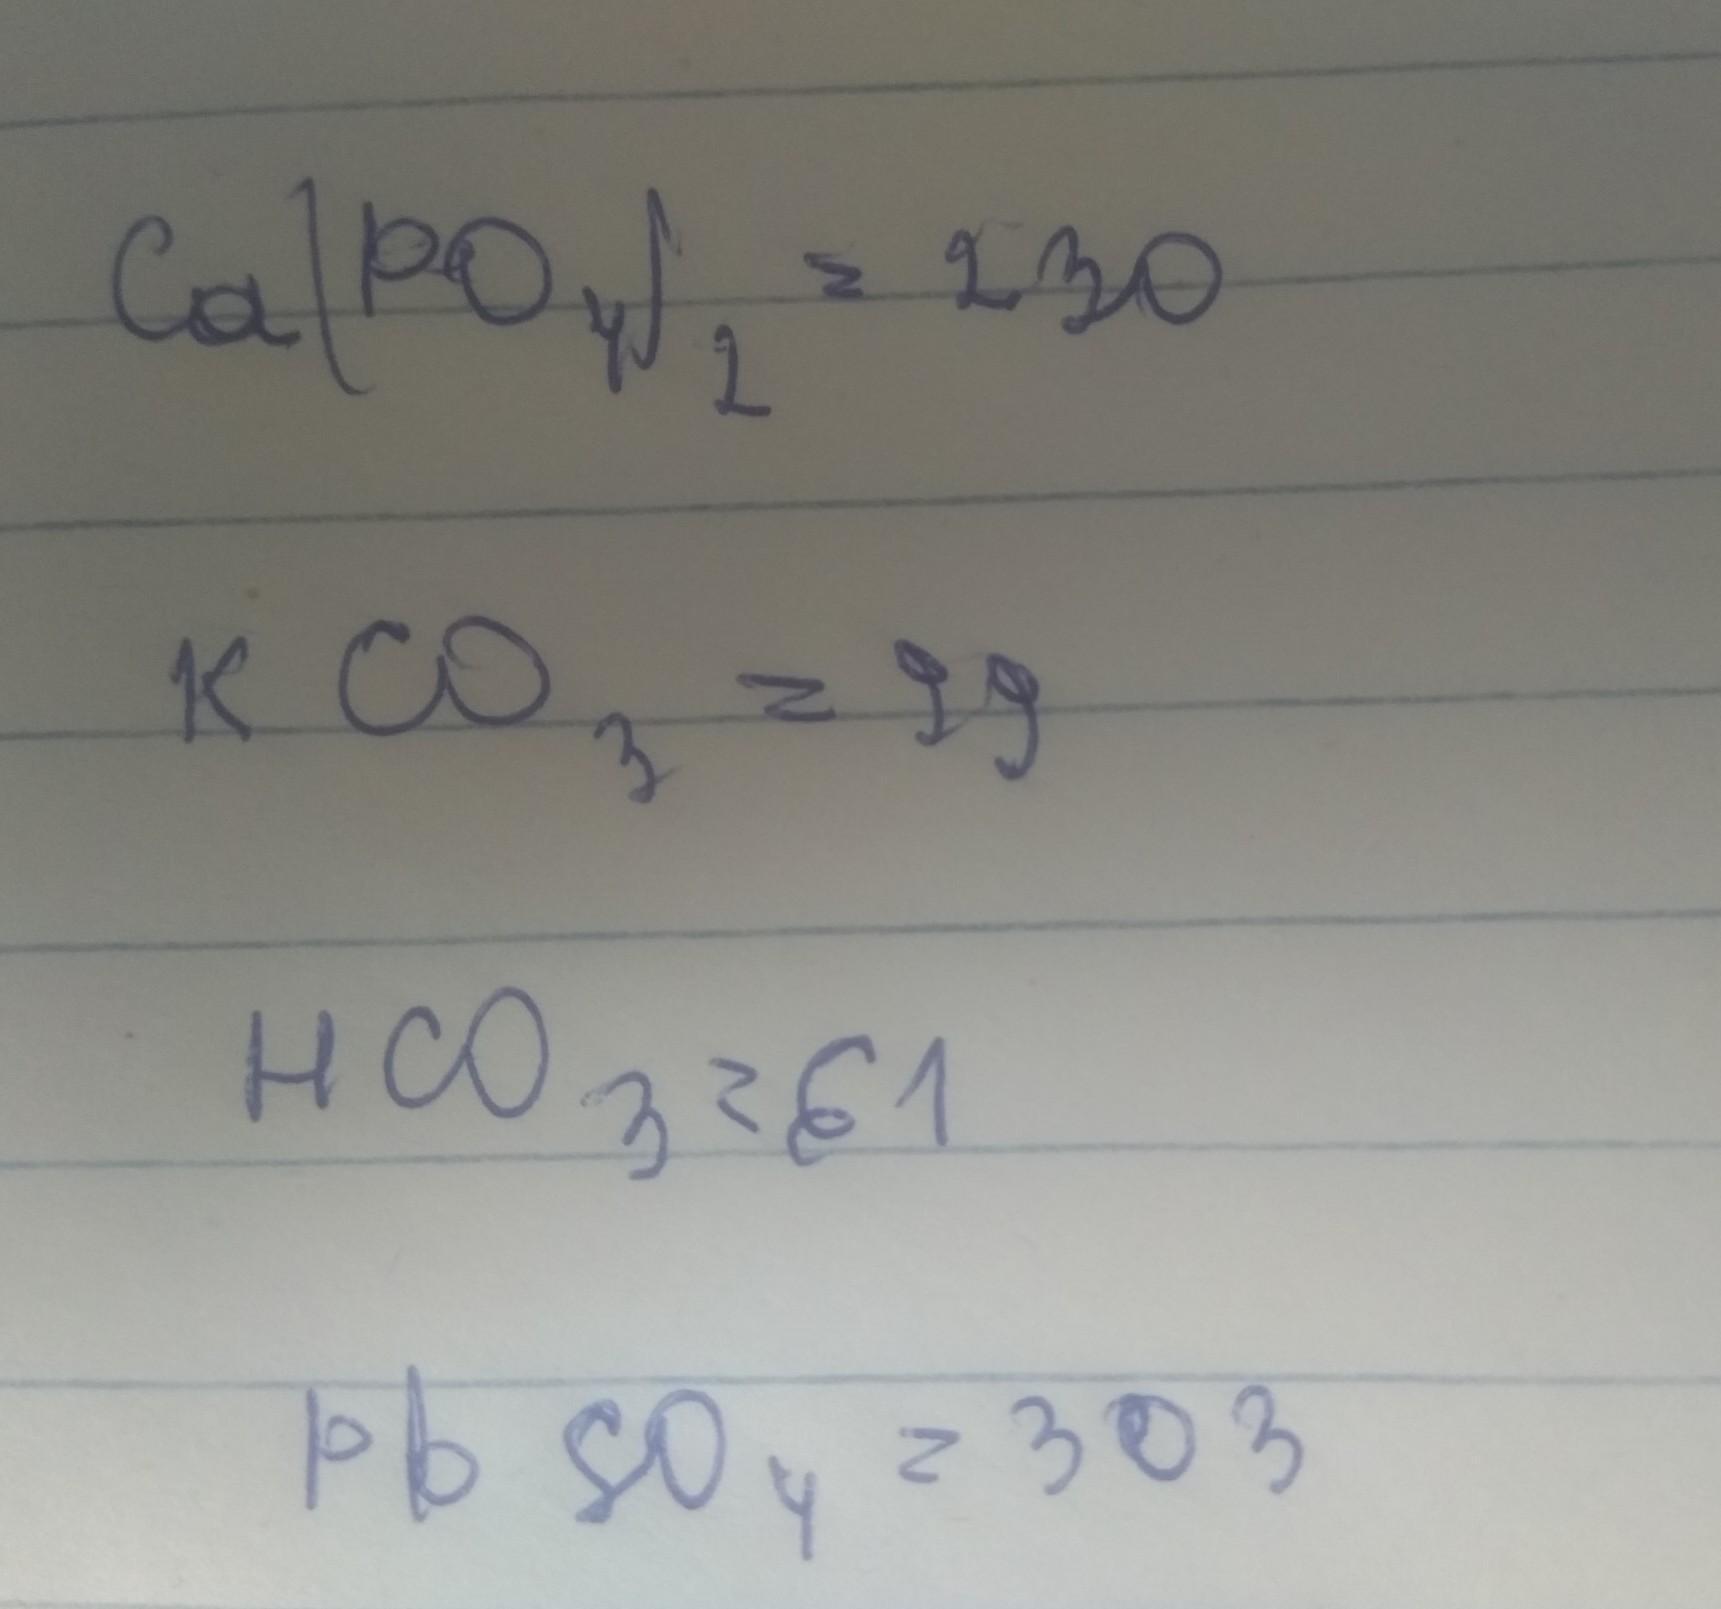 Ca(PO₄)₂ = 230
K CO₃ = 99
HCO₃ = 61
Pb SO₄ = 303